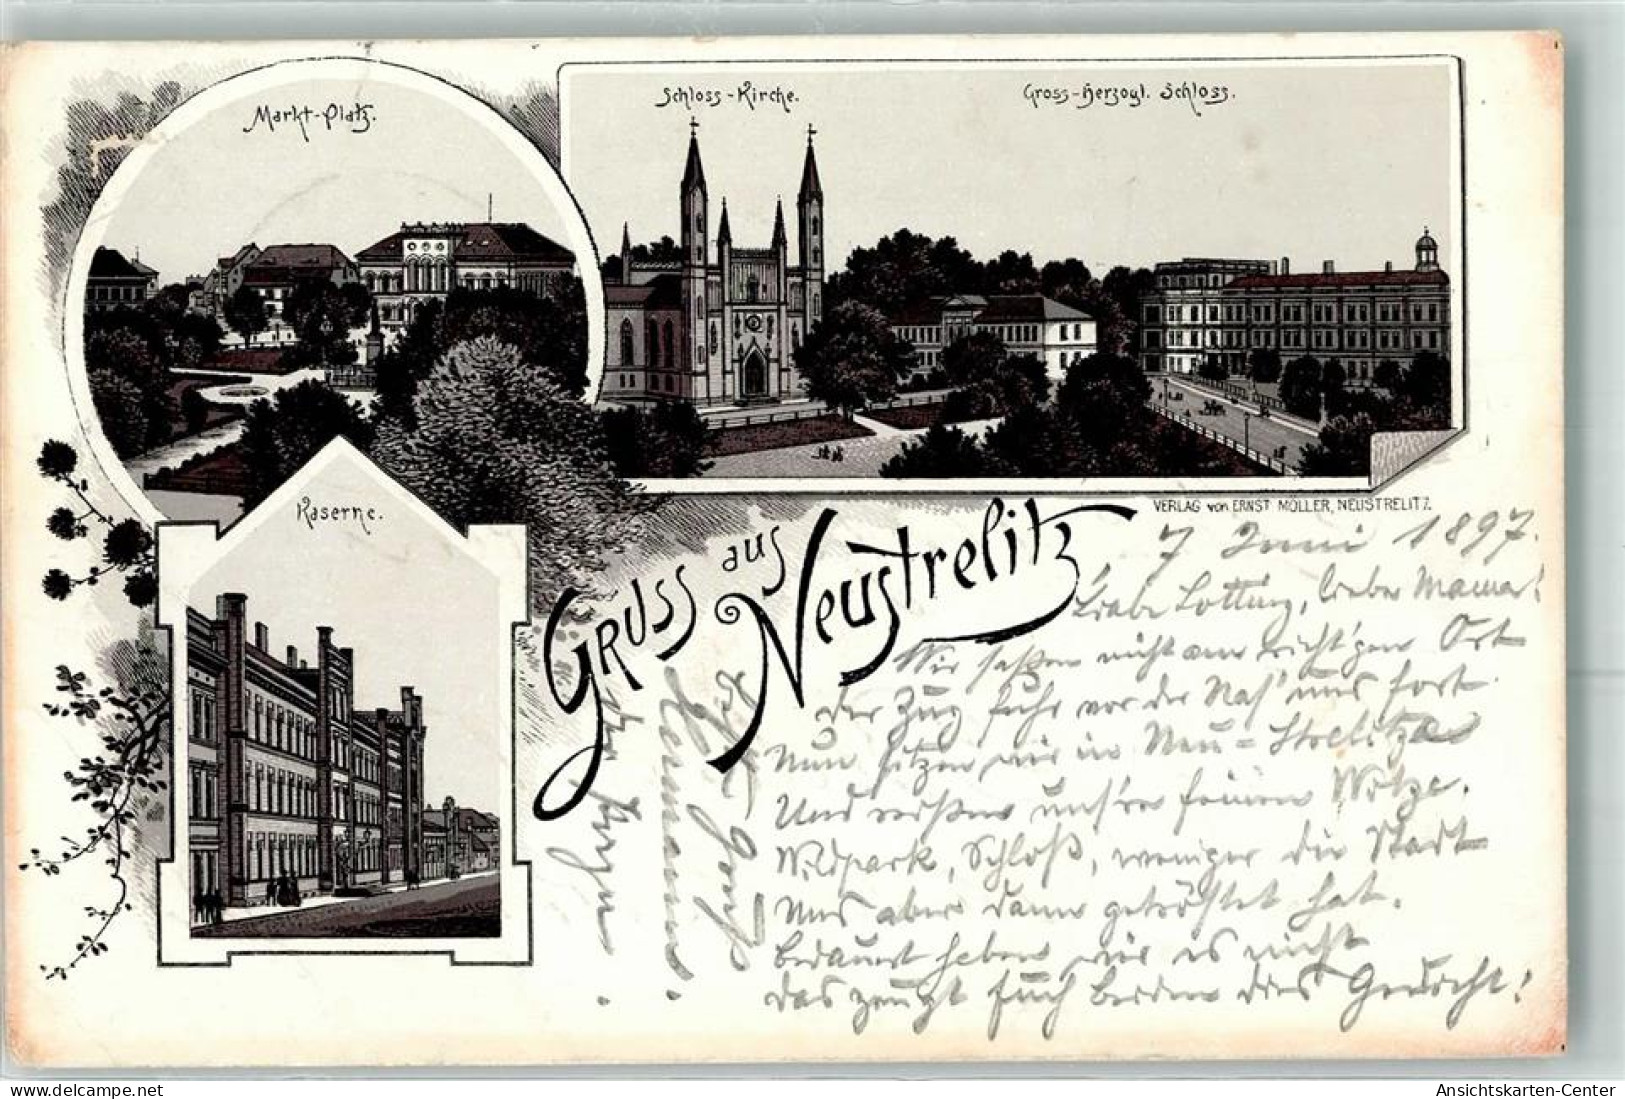 Markt-Platz.
Schloss-Kirche.
Gross-Herzogl. Schloss.
Kaserne.
VERLAG von ERNST MÖLLER, NEUSTRELITZ.
Gruss aus Neustrelitz
7 Juni 1897.
Liebe Lotting, lieber Mama!
Wir saßen nicht am richt'gen Ort
Der Zug fuhr vor der Nas' uns fort.
Nun sitzen wir in Neu-Strelitz
Und reißen uns're feinen Witze.
Wildpark, Schloß, weniger die Stadt
Uns aber dann getröstet hat.
Bedauert haben wir es nicht
Das zeugt Euch beiden dies Gedicht!
Hermann